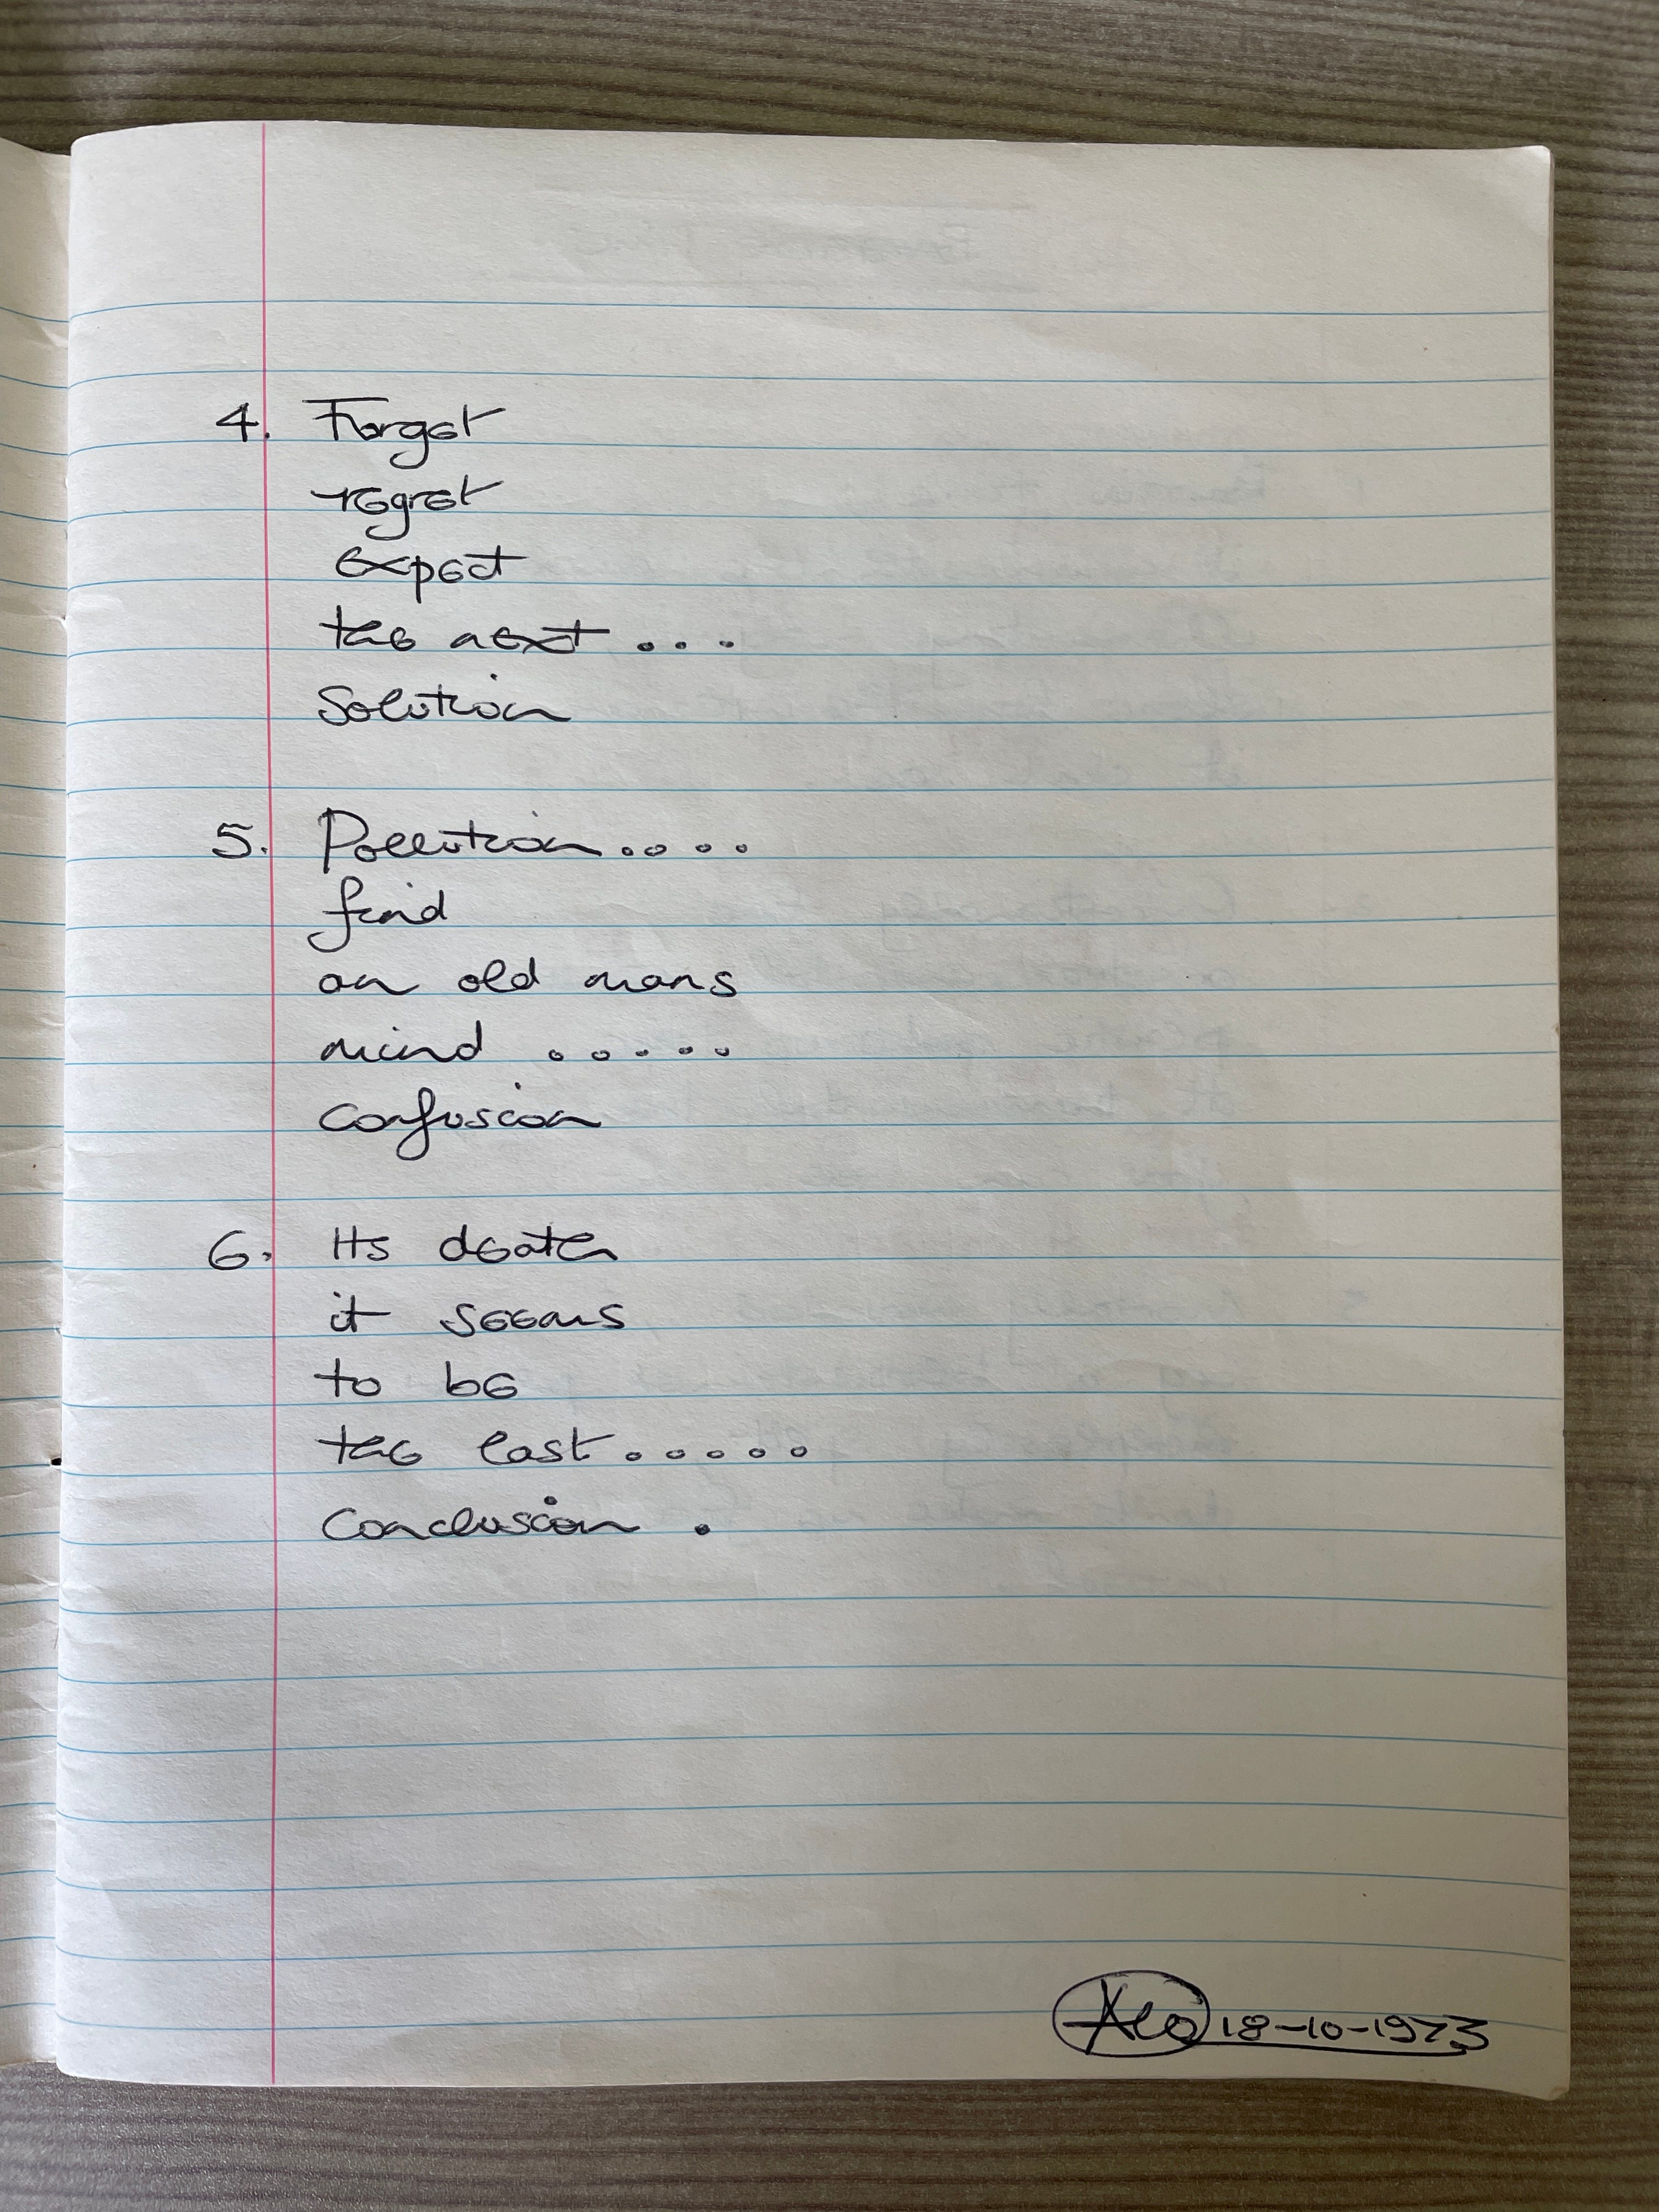 4. Forget
regret
expect
the next ...
Solution
5. Pollution....
find
an old mans
mind .....
confusion
6. Its death
it seems
to be
the last.....
Conclusion .
18-10-1973